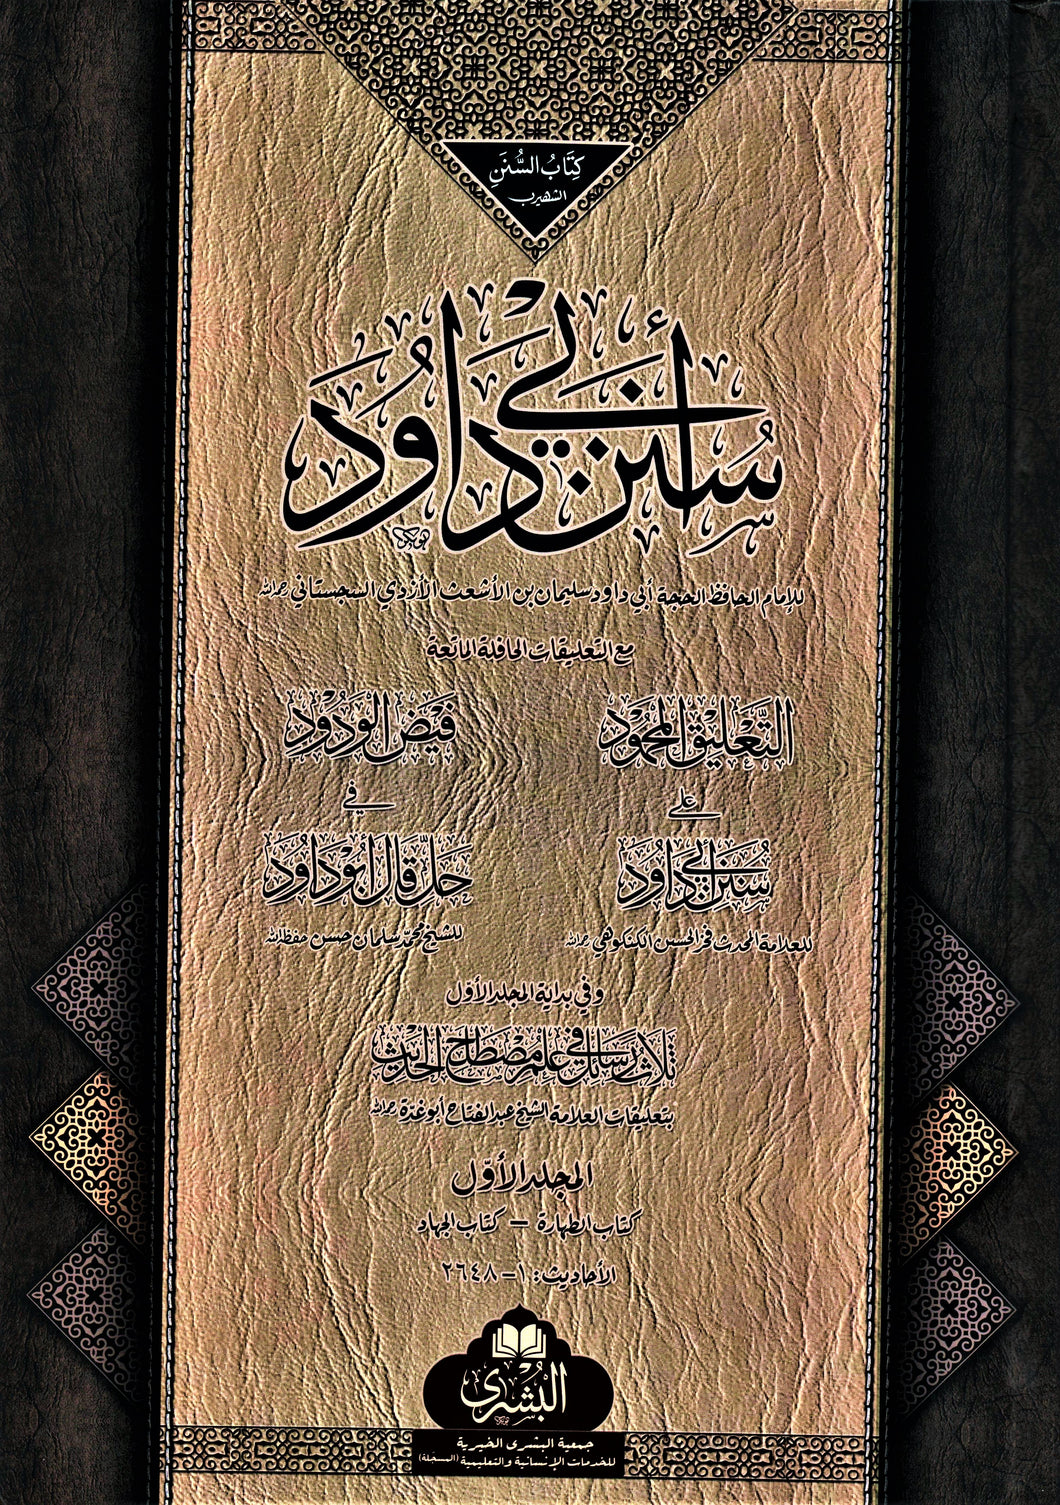 كِتَابُ السُّنَنِ
الشهير بـ
سُنَن أَبِي دَاوُدَ
للإمام الحافظ الحجة أبي داود سليمان بن الأشعث الأزدي السجستاني رحمه الله
مع التعليقات الحافلة الماتعة
التَّعْلِيْقُ الْمَحْمُوْد
عَلى
سُنَن أَبِي دَاوُد
للعلامة المحدث فخر الحسن الكنكوهي رحمه الله
فَيْضُ الْوَدُوْد
فِي
حَلِّ قَالَ أَبُوْ دَاوُد
للشيخ محمد سلمان حسن حفظه الله
وفي بداية المجلد الأول
ثَلَاثُ رَسَائِلَ فِي عِلْمِ مُصْطَلَحِ الْحَدِيْثِ
بتعليقات العلامة الشيخ عبد الفتاح أبو غدة رحمه الله
المجلد الأوّل
كتاب الطهارة – كتاب الجهاد
الأحاديث: ١-٢٦٤٨
البُشرى
جمعية البشرى الخيرية
للخدمات الإنسانية والتعليمية (المسجّلة)